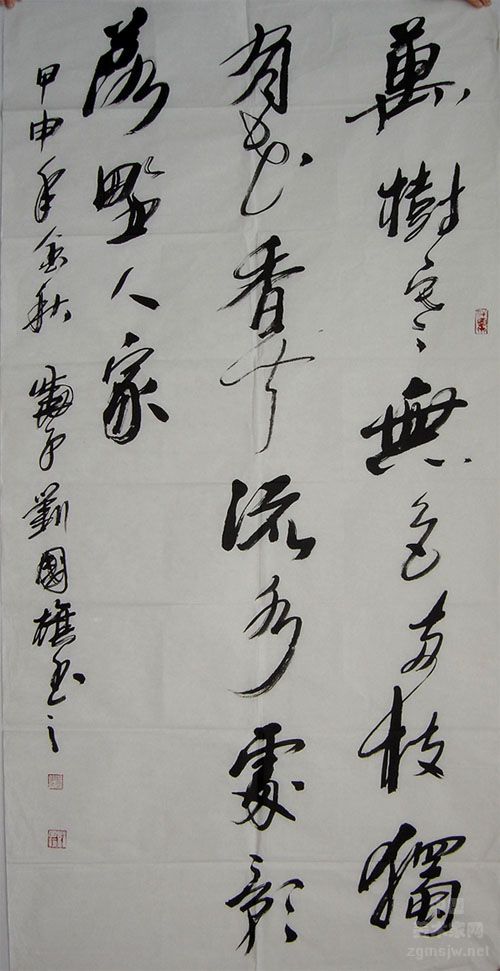 萬樹寒無色南枝獨
有花香聞流水處影
落野人家
甲申年金秋 劉國 書之
术家网
zgmsjw.net